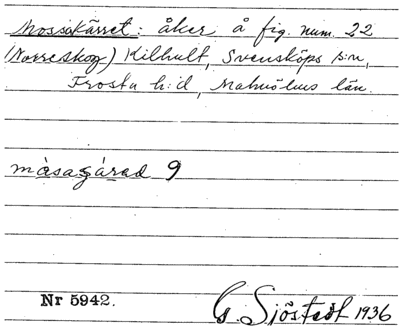 Mossakärret: åker å fig. num. 22
(Norreskog) Kilhult, Svensköps s:n,
Frosta h:d, Malmöhus län.
måsasárad 9
Nr 5942.
G. Sjöstedt 1936